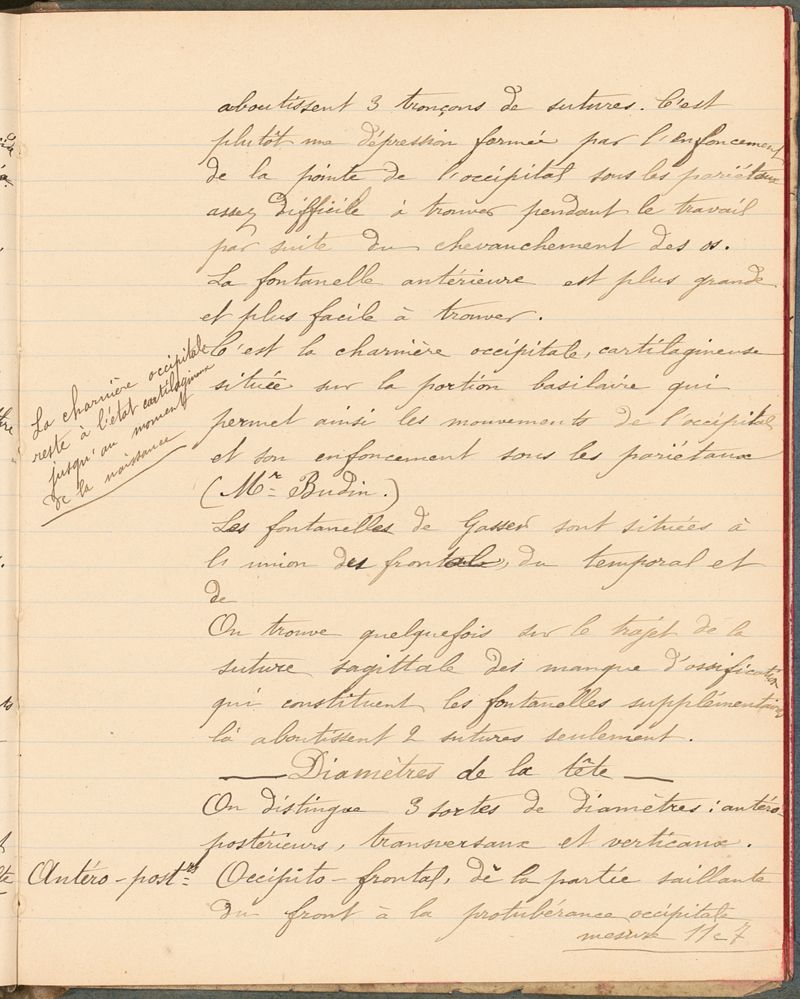 aboutissent 3 tronçons de sutures. C'est
plutôt une dépression formée par l'enfoncement
de la pointe de l'occipital sous les pariétaux
assez difficile à trouver pendant le travail
par suite du chevauchement des os.
La fontanelle antérieure est plus grande
et plus facile à trouver.
C'est la charnière occipitale, cartilagineuse
située sur la portion basilaire qui
permet ainsi les mouvements de l'occipital
et son enfoncement sous les pariétaux
(Mr Budin.)
La charnière occipitale
reste à l'état cartilagineux
jusqu'au moment
de la naissance
Les fontanelles de Gasser sont situées à
l'union des frontale, du temporal et
de
On trouve quelquefois sur le trajet de la
suture sagittale des manque d'ossification
qui constituent les fontanelles supplémentaires
là aboutissent 2 sutures seulement.
— Diamètres de la tête —
On distingue 3 sortes de diamètres : antéro-
postérieurs, transversaux et verticaux.
Antéro-postrs Occipito-frontal, de la partie saillante
du front à la protubérance occipitale
mesure 11c7